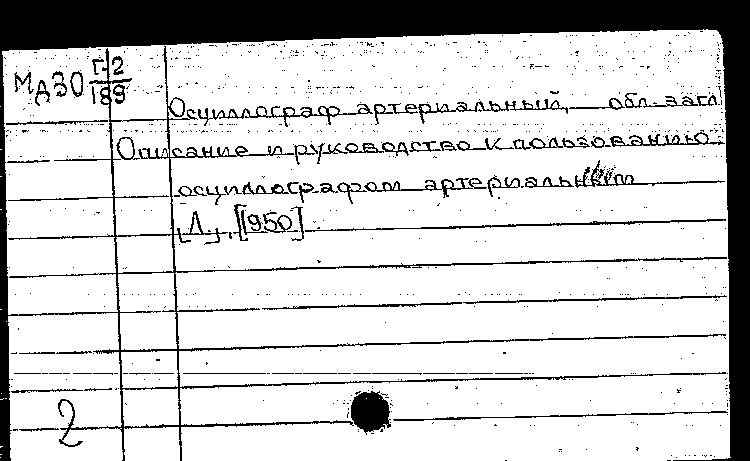 МД30 Г-2/189
Осциллограф артериальный, обл. загл
Описание и руководство к пользованию
осциллографом артериальным
[Л.], [1950]
2